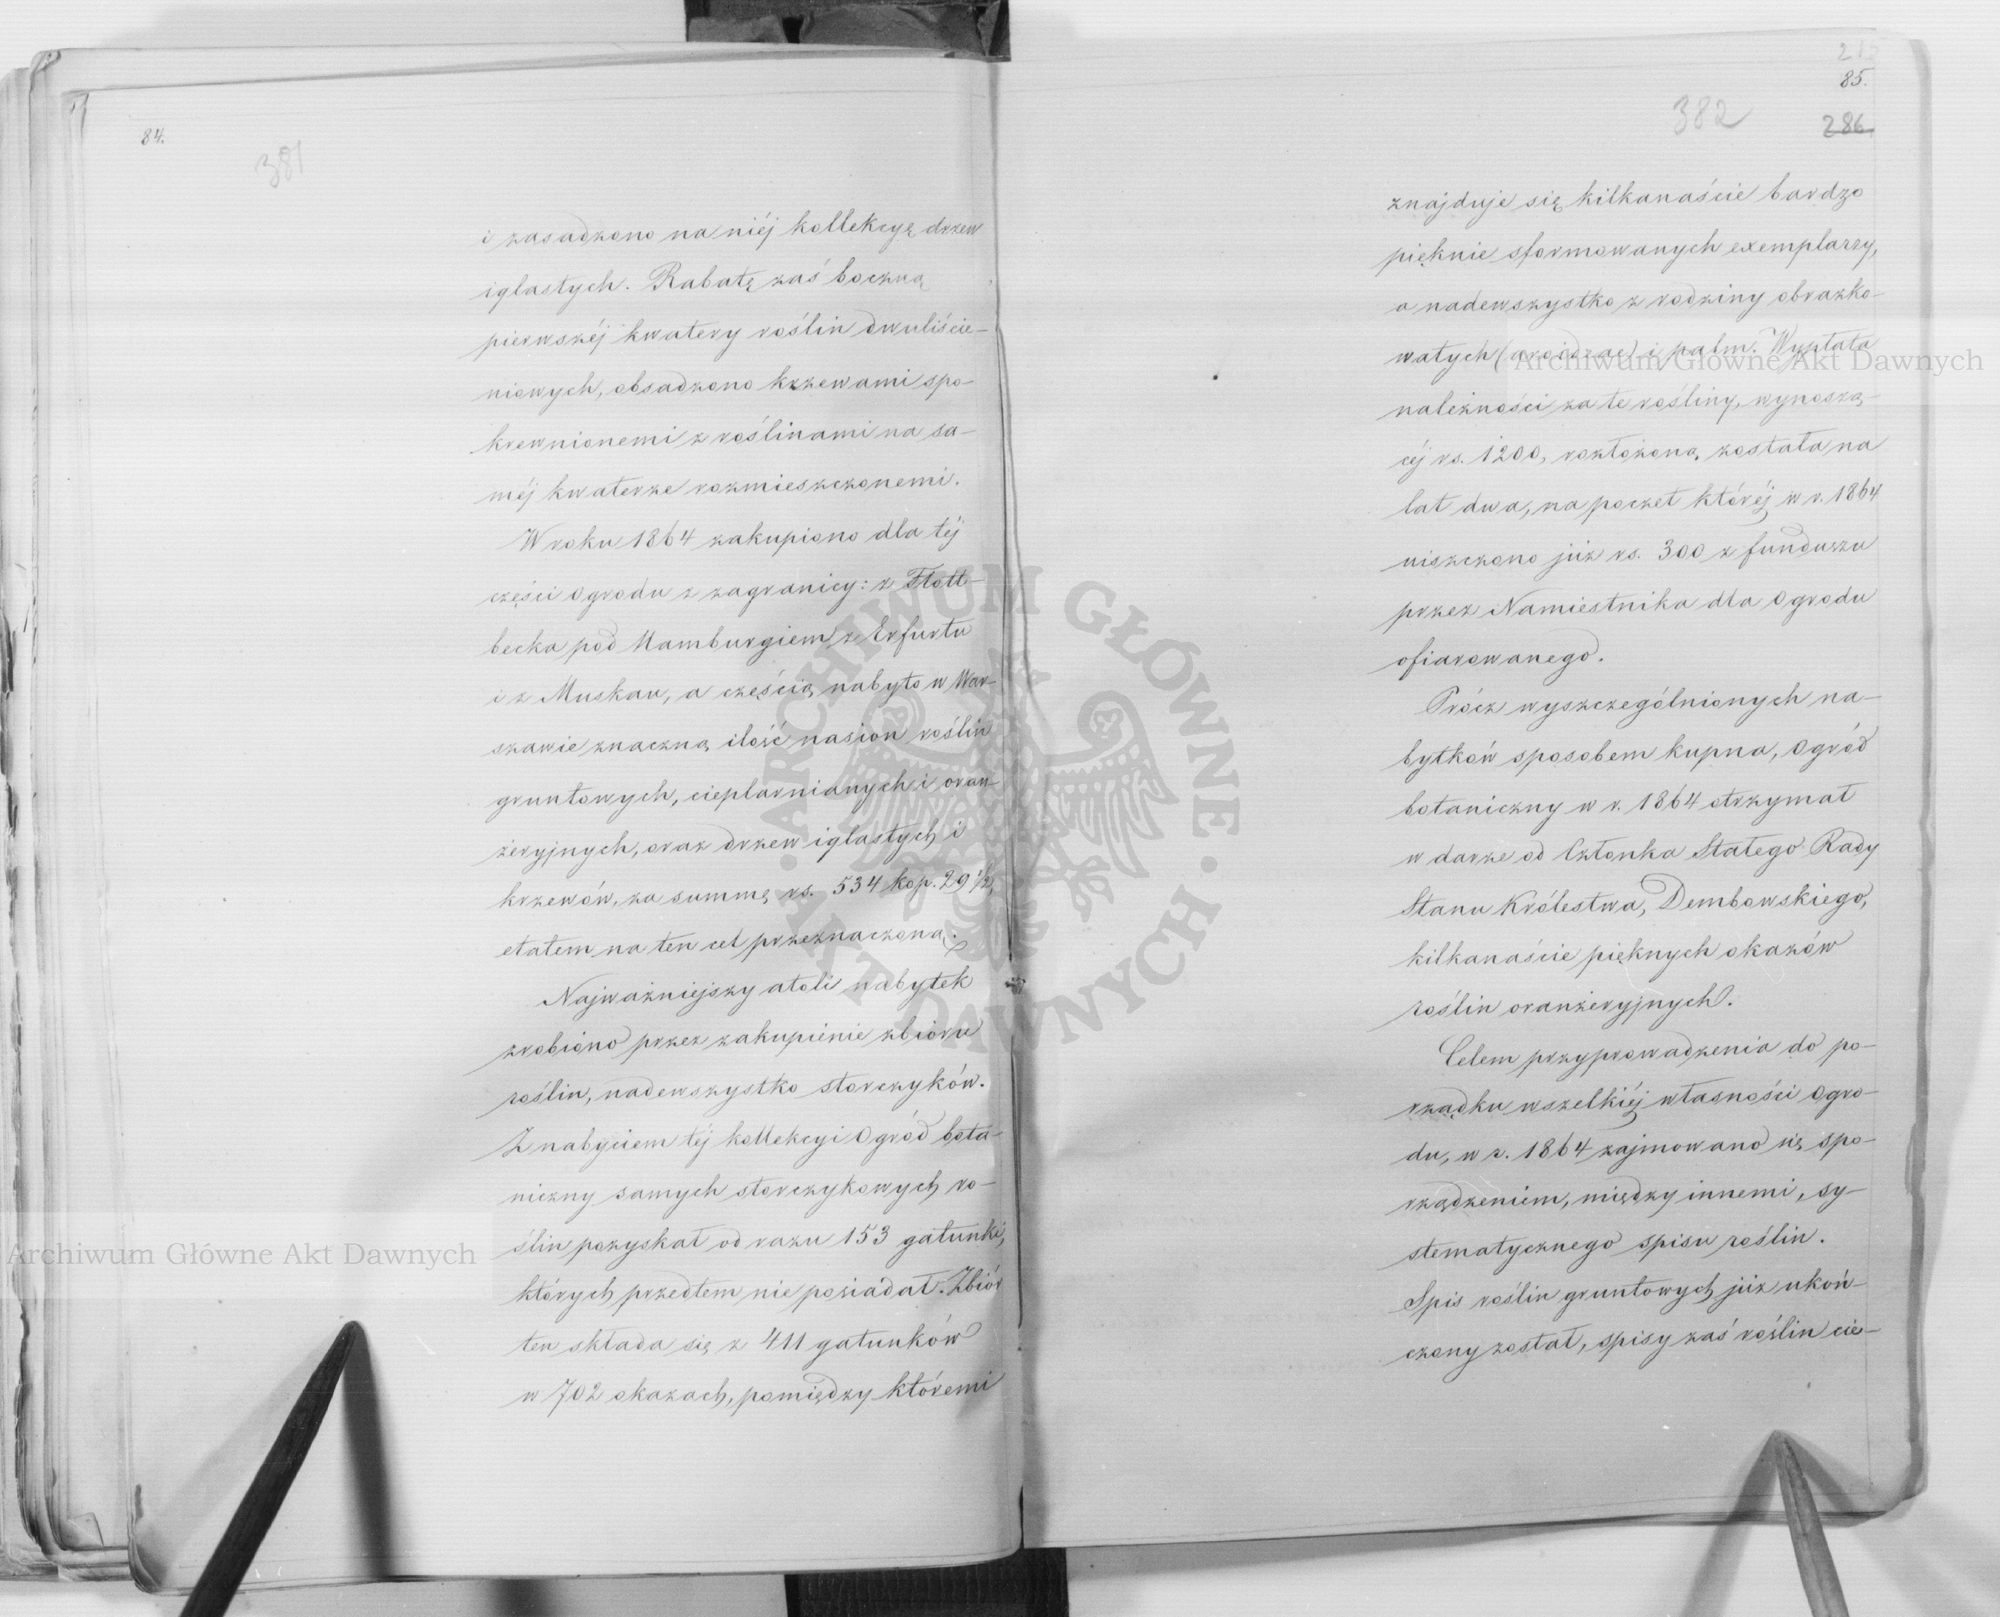 84.
381
i zasadzono na niéj kollekcyę drzew
iglastych. Rabatę zaś boczną
pierwszéj kwatery roślin dwuliście-
niowych, obsadzono krzewami spo-
krewnionemi z roślinami na sa-
méj kwaterze rozmieszczonemi.
W roku 1864 zakupiono dla téj
części Ogrodu z zagranicy: z Flott-
becka pod Hamburgiem, z Erfurtu
i z Muskau, a częścią nabyto w War-
szawie znaczną ilość nasion roślin
gruntowych, cieplarnianych i oran-
żeryjnych, oraz drzew iglastych i
krzewów, za summę rs. 534 kop. 29 1/2,
etatem na ten cel przeznaczoną.
Najważniejszy atoli nabytek
zrobiono przez zakupienie zbioru
roślin, nadewszystko storczyków.
Z nabyciem téj kollekcyi Ogród bota-
niczny samych storczykowych ro-
ślin pozyskał od razu 153 gatunki,
których przedtem nie posiadał. Zbiór
ten składa się z 411 gatunków
w 702 okazach, pomiędzy któremi
85.
382
286
znajduje się kilkanaście bardzo
pięknie sformowanych exemplarzy,
a nadewszystko z rodziny obrazko-
watych (aroideae) i palm. Wypłata
należności za te rośliny, wynoszą-
céj rs. 1200, rozłożoną została na
lat dwa, na poczet któréj w r. 1864
uiszczono już rs. 300 z funduszu
przez Namiestnika dla Ogrodu
ofiarowanego.
Prócz wyszczególnionych na-
bytków sposobem kupna, Ogród
botaniczny w r. 1864 otrzymał
w darze od Członka Stałego Rady
Stanu Królestwa, Dembowskiego,
kilkanaście pięknych okazów
roślin oranżeryjnych.
Celem przyprowadzenia do po-
rządku wszelkiéj własności Ogro-
du, w r. 1864 zajmowano się spo-
rządzeniem, między innemi, sy-
stematycznego spisu roślin.
Spis roślin gruntowych już ukoń-
czony został, spisy zaś roślin cie-
Archiwum Główne Akt Dawnych
Archiwum Główne Akt Dawnych
ARCHIWUM GŁÓWNE AKT DAWNYCH